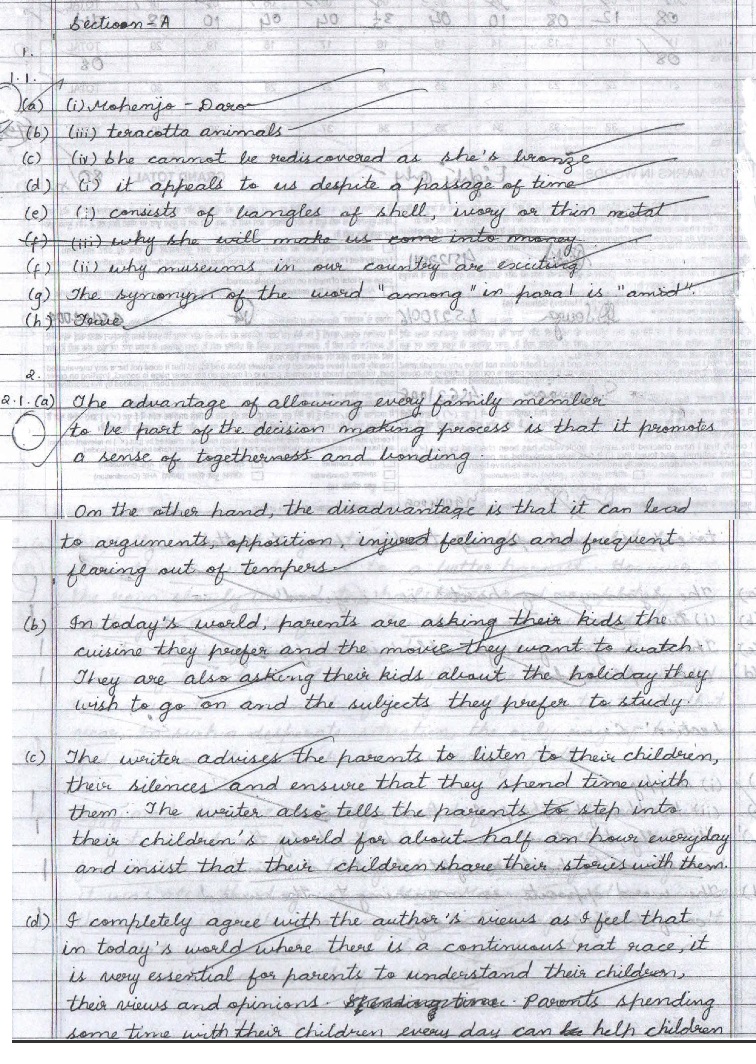 Sectioon-A
1.
1.1.
(a) (i) Mohenjo - Daro
(b) (iii) teracotta animals
(c) (iv) she cannot be rediscovered as she's bronze
(d) (i) it appeals to us despite a passage of time
(e) (i) consists of bangles of shell, ivory or thin metal
(f) (iii) why she will make us come into money
(f) (ii) why museums in our country are exciting
(g) The synonym of the word "among" in para 1 is "amid".
(h) True
2.
2.1. (a) The advantage of allowing every family member
to be part of the decision making process is that it promotes
a sense of togetherness and bonding.
On the other hand, the disadvantage is that it can lead
to arguments, opposition, injured feelings and frequent
flaring out of tempers.
(b) In today's world, parents are asking their kids the
cuisine they prefer and the movie they want to watch.
They are also asking their kids about the holiday they
wish to go on and the subjects they prefer to study.
(c) The writer advises the parents to listen to their children,
their silences and ensure that they spend time with
them. The writer also tells the parents to step into
their children's world for about half an hour everyday
and insist that their children share their stories with them.
(d) I completely agree with the author's views as I feel that
in today's world where there is a continuous rat race, it
is very essential for parents to understand their children,
their views and opinions. Spending time. Parents spending
some time with their children every day can be help children